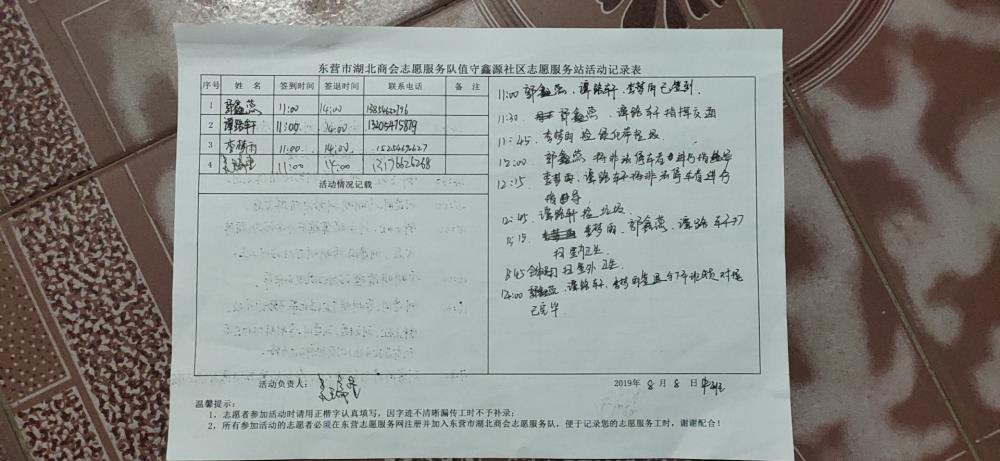 东营市湖北商会志愿服务队值守鑫源社区志愿服务站活动记录表
序号 姓 名 签到时间 签退时间 联系电话 备 注
1 郭鑫蕊 11:00 14:00
2 谭路轩 11:00 14:00 13205475879
3 李梦雨 11:00 14:00
4 11:00 14:00 13176626268
活动情况记载
11:00 郭鑫蕊、谭路轩、李梦雨已签到.
11:30 郭鑫蕊、谭路轩指挥交通
11:45 李梦雨捡绿化带垃圾
12:00 郭鑫蕊 将非法停车者进行指导
12:15 李梦雨、谭路轩将非法停车者进行
指导.
12:45 谭路轩捡垃圾
李梦雨、郭鑫蕊、谭路轩打
扫室内卫生
扫室外卫生
14:00 郭鑫蕊、谭路轩、李梦雨签退
已完毕
活动负责人:
2019年 8 月 8 日
温馨提示:
1,志愿者参加活动时请用正楷字认真填写,因字迹不清晰漏传工时不予补录;
2,所有参加活动的志愿者必须在东营志愿服务网注册并加入东营市湖北商会志愿服务队,便于记录您的志愿服务工时,谢谢配合!